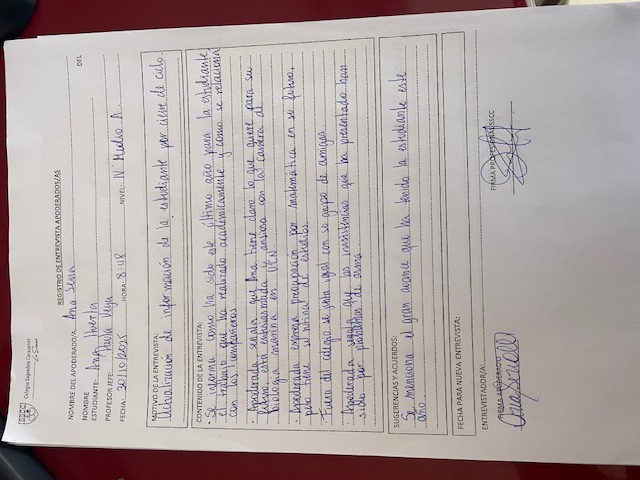 Colegio Sagrados Corazones
REGISTRO DE ENTREVISTA APODERADOS/AS
NOMBRE DEL APODERADO/A: Ana
DEL
NOMBRE
ESTUDIANTE: Ana Fuentes
PROFESOR JEFE: Paula Vega
FECHA: 30/10/2025 HORA: 8:48 NIVEL: IV Medio A.
MOTIVO DE LA ENTREVISTA:
actualización de información de la estudiante por cierre de ciclo.
CONTENIDO DE LA ENTREVISTA:
• Se informa como ha sido este último año para la estudiante
y trabajo que ha realizado académicamente y como se relaciona
con los compañeros
• Apoderada señala que Ana tiene claro lo que quiere para su
futuro, está entusiasmada ansiosa con la carrera de
biología marina en UCN
• Apoderada expresa preocupación por matemática en su futuro,
pero tiene su rutina de estudios.
• Fuera del colegio se junta igual con su grupo de amigos
• Apoderada señala que las inasistencias que ha presentado han
sido por problemas de asma
SUGERENCIAS Y ACUERDOS:
Se menciona el gran avance que ha tenido la estudiante este
año.
FECHA PARA NUEVA ENTREVISTA:
ENTREVISTADOR/A:
FIRMA APODERADO
FIRMA PROFESIONAL SSCC